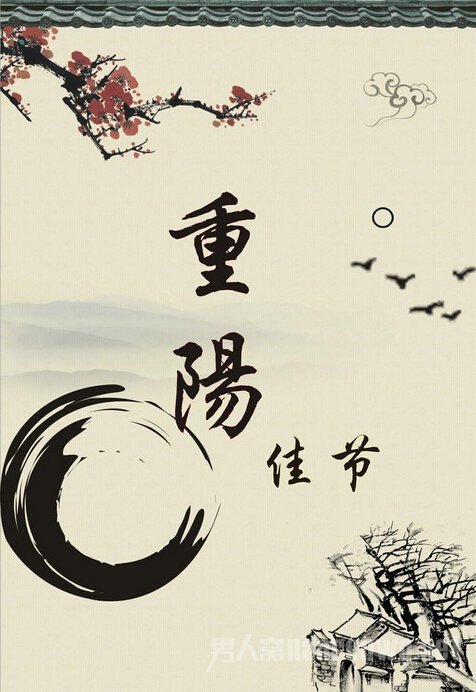 重
陽
佳节
男人窝